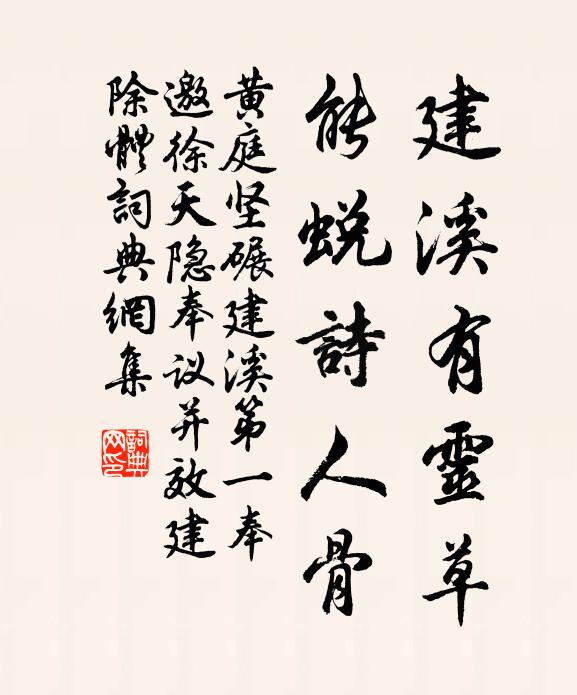 建溪有靈草
能蜕詩人骨
黄庭坚碾建溪第一奉
邀徐天隐奉议并效建
除體詞典網集
詞典
网印